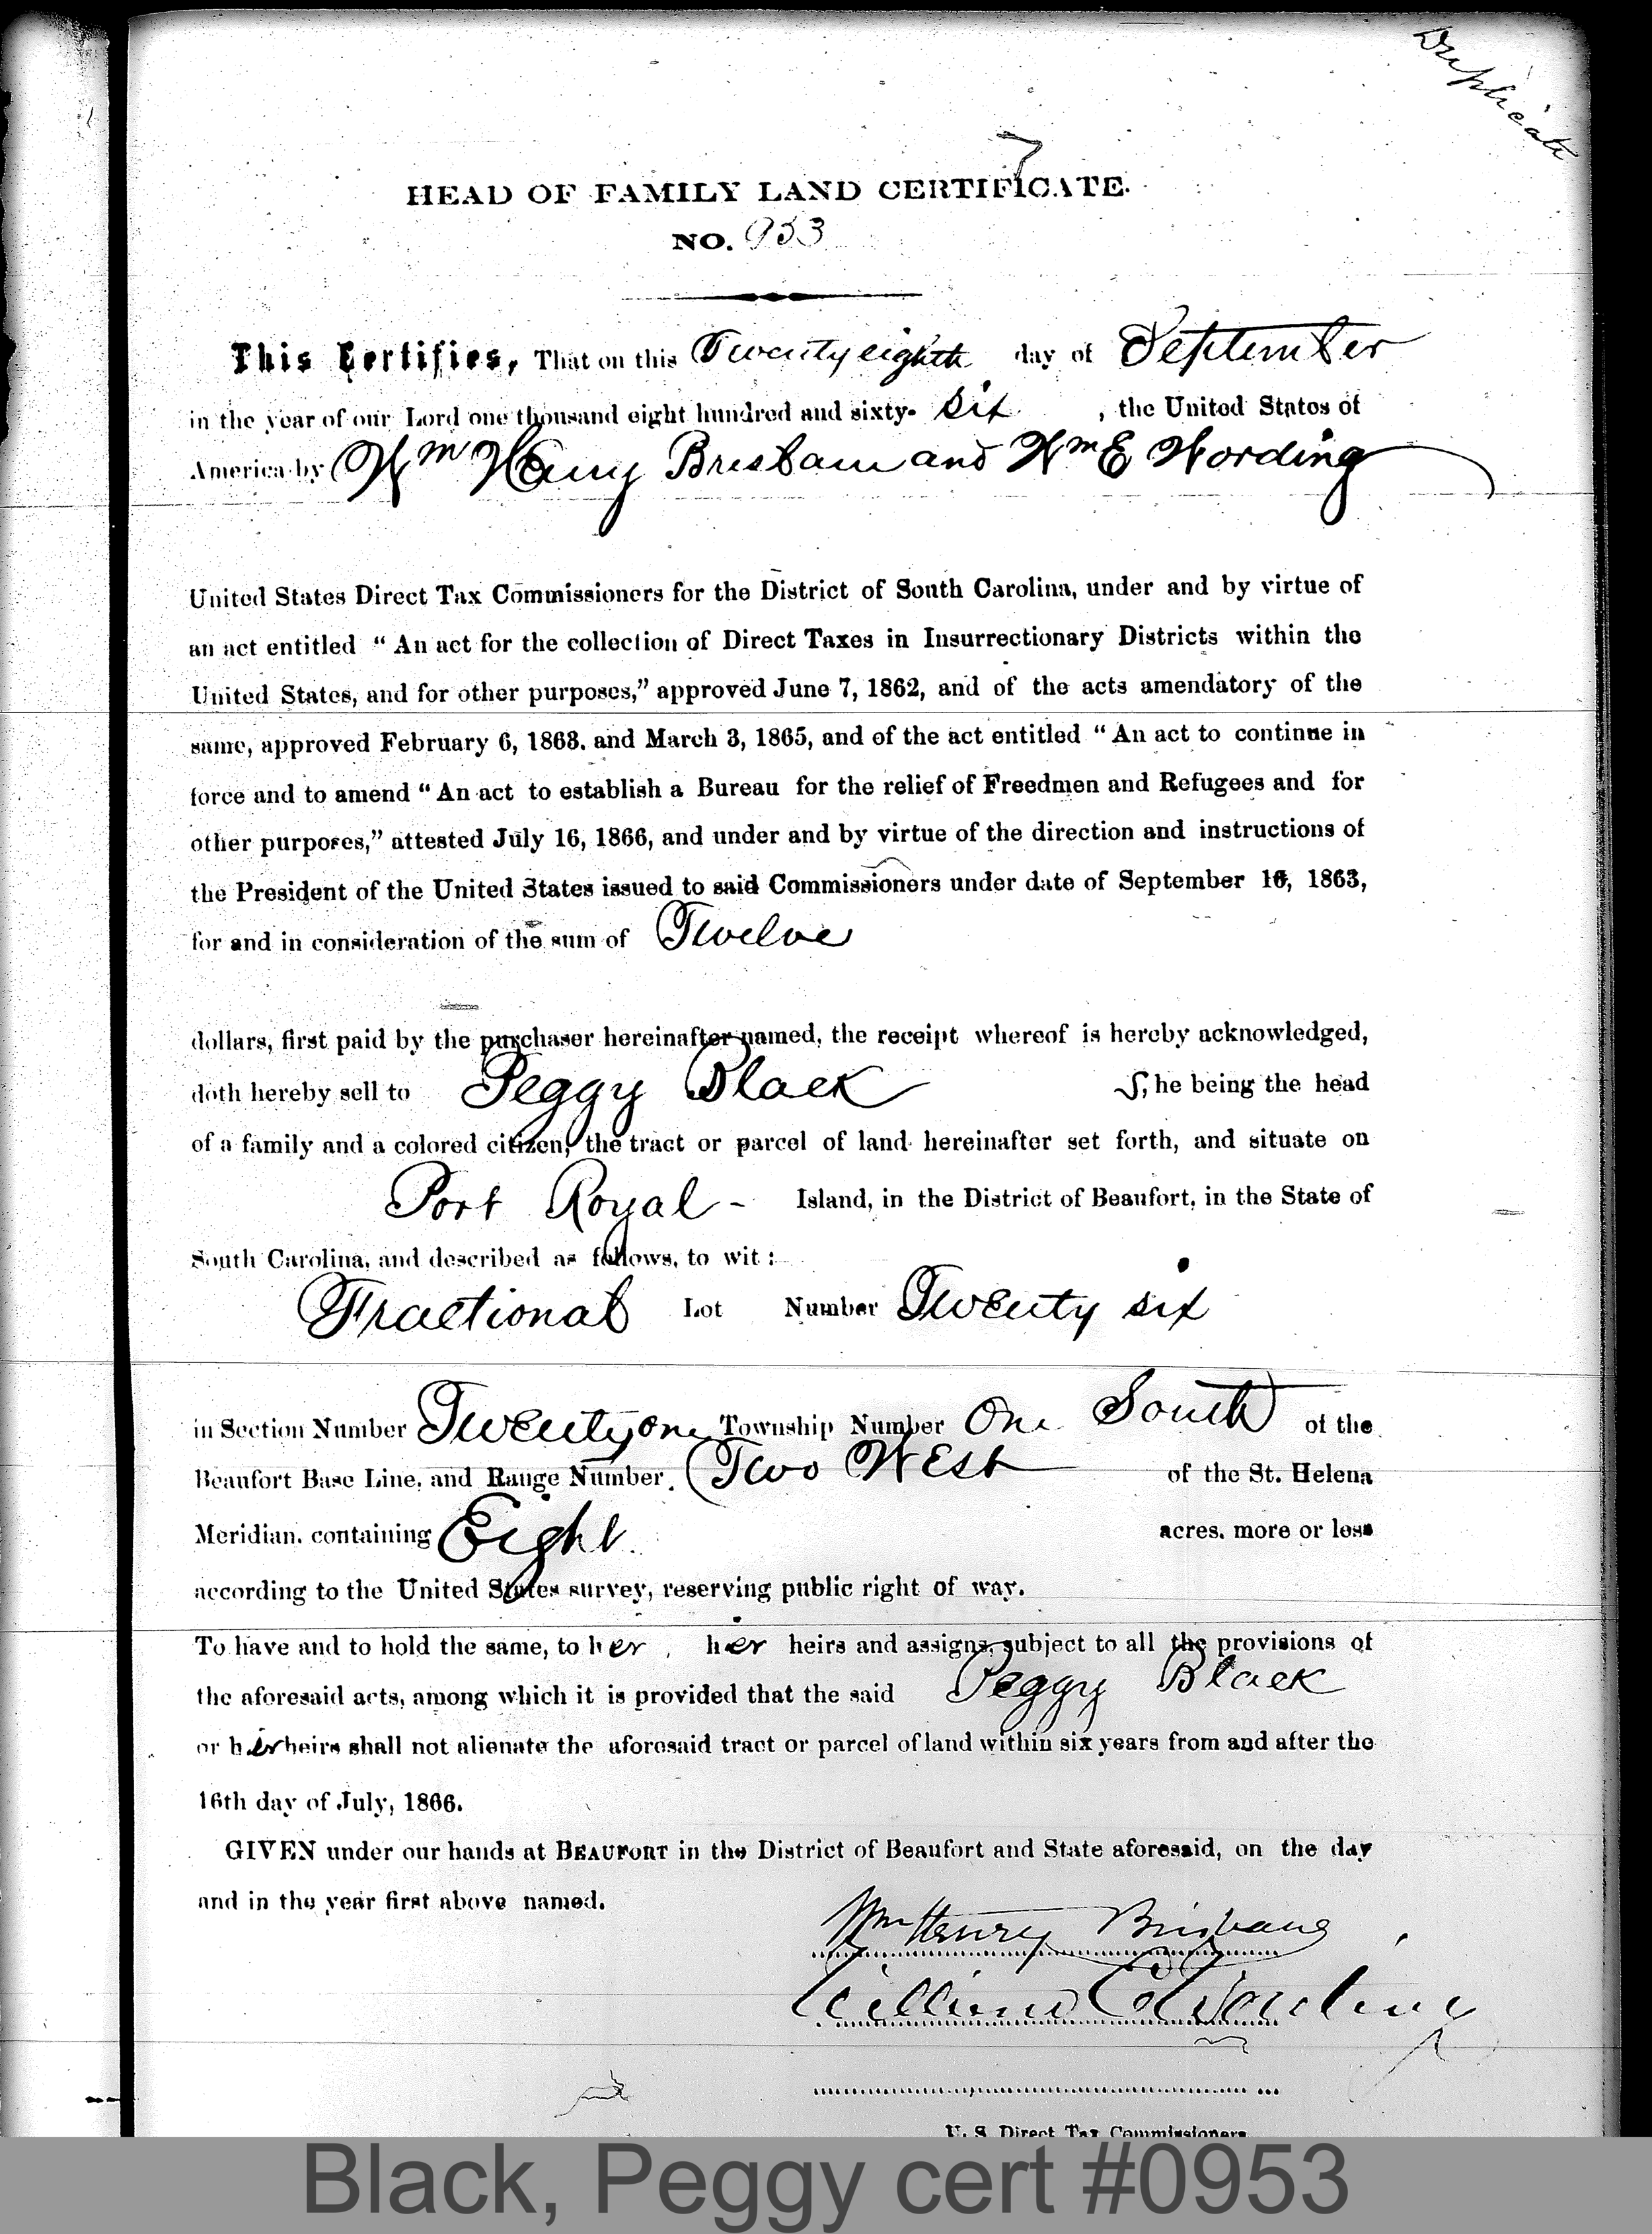 Duplicate
HEAD OF FAMILY LAND CERTIFICATE.
NO. 953
This Certifies, That on this Twenty eighth day of September
in the year of our Lord one thousand eight hundred and sixty- six , the United States of
America by Wm Henry Brisbane and Wm E Wording
United States Direct Tax Commissioners for the District of South Carolina, under and by virtue of
an act entitled “ An act for the collection of Direct Taxes in Insurrectionary Districts within the
United States, and for other purposes,” approved June 7, 1862, and of the acts amendatory of the
same, approved February 6, 1863. and March 3, 1865, and of the act entitled “ An act to continue in
force and to amend “ An act to establish a Bureau for the relief of Freedmen and Refugees and for
other purposes,” attested July 16, 1866, and under and by virtue of the direction and instructions of
the President of the United States issued to said Commissioners under date of September 16, 1863,
for and in consideration of the sum of Twelve
dollars, first paid by the purchaser hereinafter named, the receipt whereof is hereby acknowledged,
doth hereby sell to Peggy Black S, he being the head
of a family and a colored citizen, the tract or parcel of land hereinafter set forth, and situate on
Port Royal - Island, in the District of Beaufort, in the State of
South Carolina, and described as follows, to wit :
Fractional Lot Number Twenty six
in Section Number Twenty one Township Number One South of the
Beaufort Base Line, and Range Number. Two West of the St. Helena
Meridian. containing Eight acres. more or less
according to the United States survey, reserving public right of way.
To have and to hold the same, to her , her heirs and assigns, subject to all the provisions of
the aforesaid acts, among which it is provided that the said Peggy Black
or her heirs shall not alienate the aforesaid tract or parcel of land within six years from and after the
16th day of July, 1866.
GIVEN under our hands at BEAUFORT in the District of Beaufort and State aforesaid, on the day
and in the year first above named.
Wm Henry Brisbane
William E Wording
U. S. Direct Tax Commissioners
Black, Peggy cert #0953